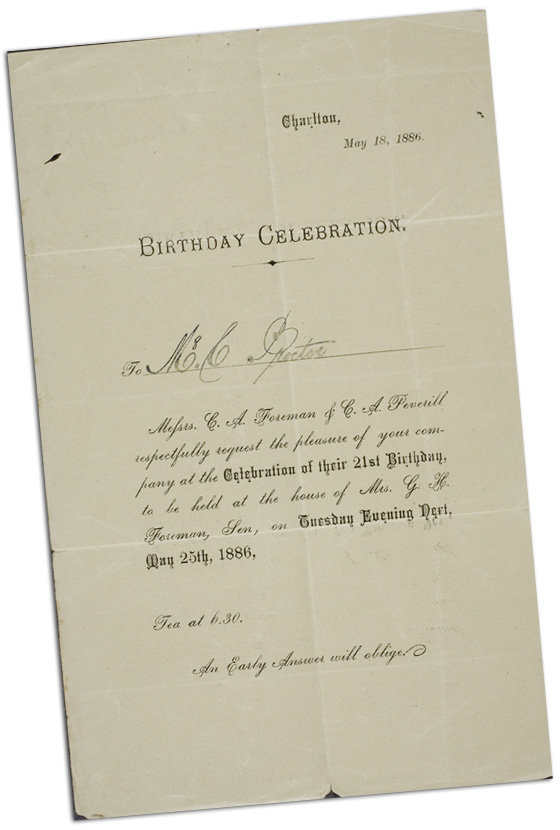 Charlton,
May 18, 1886.
BIRTHDAY CELEBRATION.
To Mr. C Procter
Messrs. C. A. Foreman & C. A. Peverill
respectfully request the pleasure of your com-
pany at the Celebration of their 21st Birthday,
to be held at the house of Mrs. G. H.
Foreman, Sen, on Tuesday Evening Next,
May 25th, 1886,
Tea at 6.30.
An Early Answer will oblige.